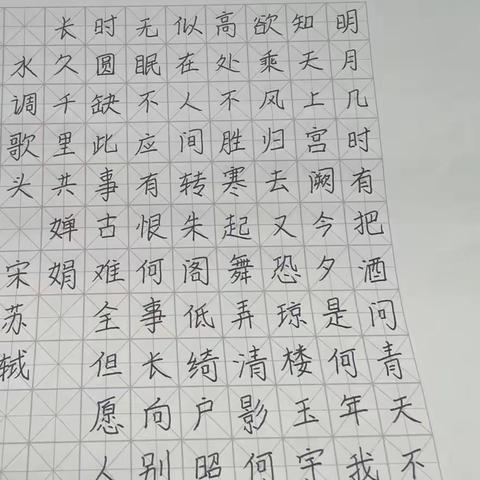 明月几时有把酒问青天不
知天上宫阙今夕是何年我
欲乘风归去又恐琼楼玉宇
高处不胜寒起舞弄清影何
似在人间转朱阁低绮户照
无眠不应有恨何事长向别
时圆缺此事古难全但愿人
长久千里共婵娟
水调歌头 宋苏轼